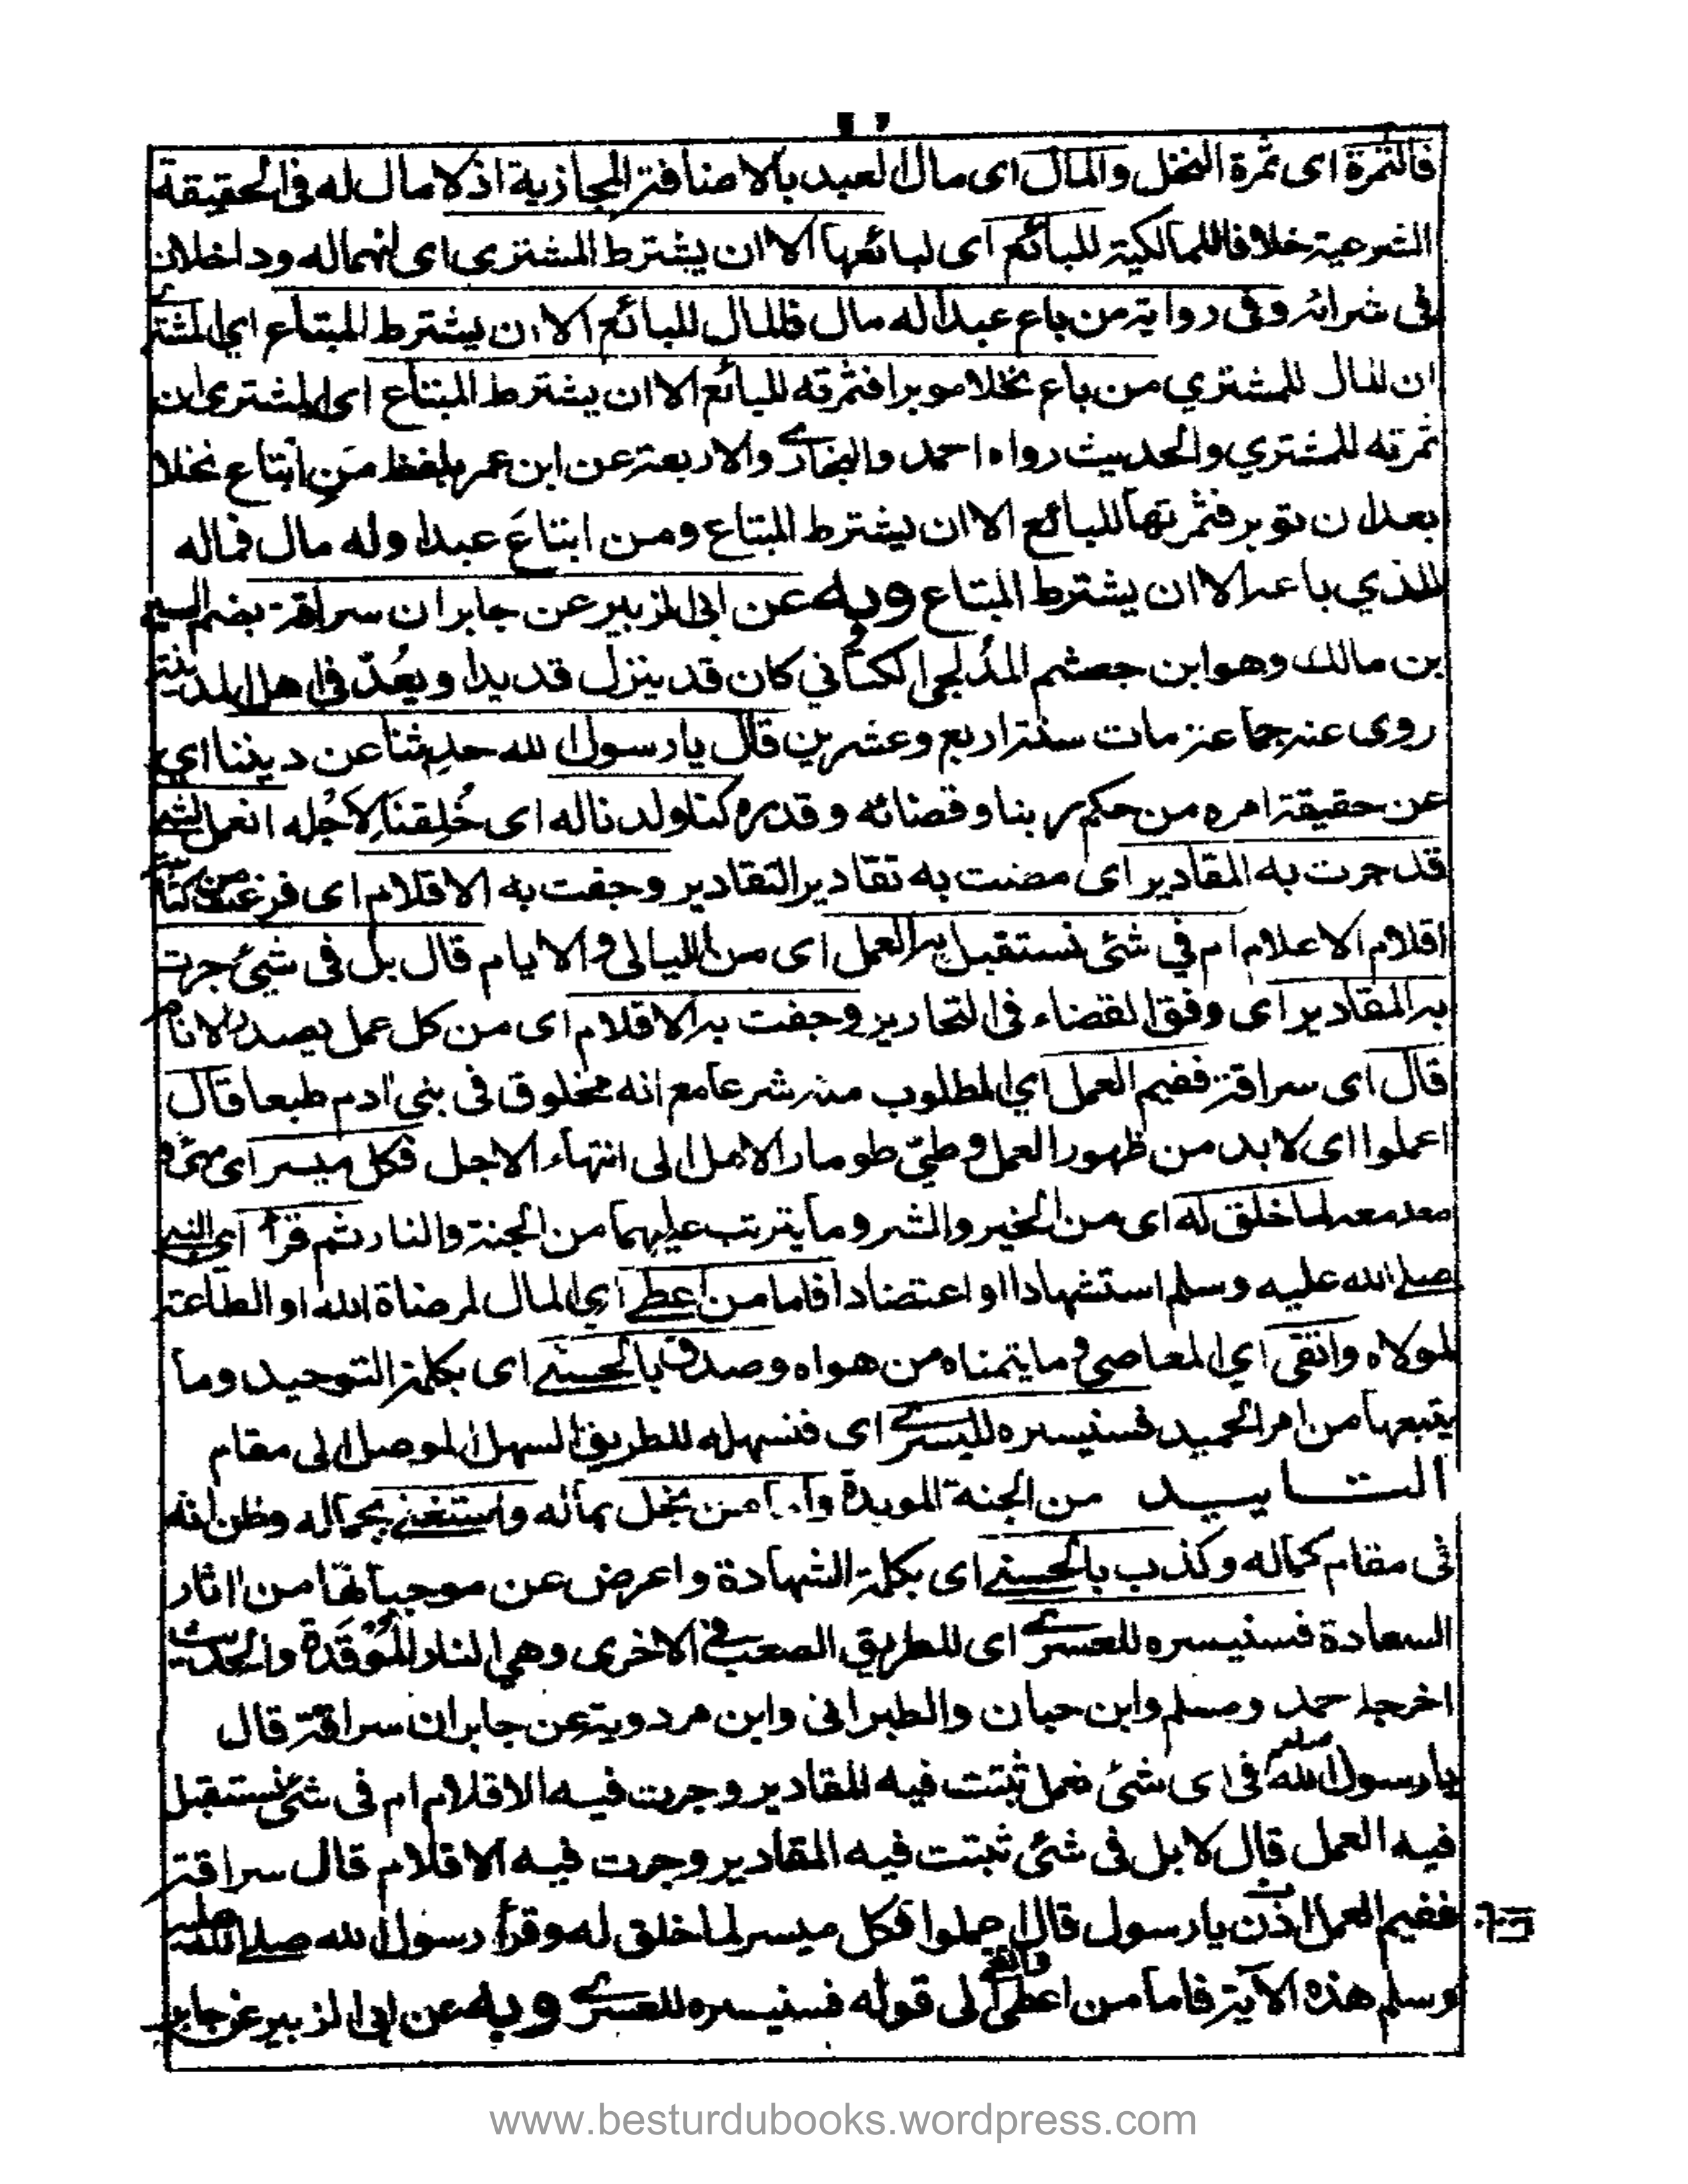 فالثمرة اى ثمرة النخل والمال اى مال العبد بالاضافة المجازية اذ لا مال له فى الحقيقة
الشرعية خلافا للمالكية للبائع اى لبائعها الا ان يشترط المشترى اى انهما له وداخلان
فى شرائه وفى رواية من باع عبدا له مال فالمال للبائع الا ان يشترط المبتاع اي المشترے
ان المال للمشتري من باع نخلا موبرا فثمرته للبائع الا ان يشترط المبتاع اى المشترى ان
ثمرته للمشتري والحديث رواه احمد والبخارے والاربعة عن ابن عمر بلفظ من ابتاع نخلا
بعد ان توبر فثمرتها للبائع الا ان يشترط المبتاع ومن ابتاعَ عبدا وله مال فماله
للذي باعه الا ان يشترط المبتاع وبه عن ابى الزبير عن جابر ان سراقة بضم السين
بن مالك وهو ابن جعشم المُدلجى الكناني كان قد ينزل قديدا ويعُدّ فى اهل المدينة
روى عنه جماعة مات سنة اربع وعشرين قال يا رسول الله حدثنا عن ديننا اي
عن حقيقة امره من حكم ربنا وقضائه وقدره كنا ولدنا له اى خُلِقنَا لِاَجُله انعمل لشئ
قد جرت به المقادير اى مضت به تقادير التقادير وجفت به الاقلام اى فرغت من كتابته
اقلام الاعلام ام في شئى نستقبل به العمل اى من الليالى والايام قال بل فى شيئ جرت
به المقادير اى وفق القضاء فى التحارير وجفت به الاقلام اى من كل عمل يصدر الانام
قال اى سراقة ففيم العمل اي المطلوب منه شرعا مع انه مخلوق فى بنى ادم طبعا قال
اعملوا اى لا بد من ظهور العمل وطيّ طومار الامل الى انتهاء الاجل فكل ميسر اى مهئ و
معد معه لما خلق له اى من الخير والشر وما يترتب عليهما من الجنة والنار ثم قرأ اي النبي
صلے الله عليه وسلم استشهادا او اعتضادا فاما من اعطے اي المال لمرضاة الله او الطاعة
لمولاه واتقى اي المعاصى وما يتمناه من هواه وصدق بالحسنے اى بكلمة التوحيد وما
يتبعها من امر الحميد فسنيسره لليسرے اى فنسهله للطريق السهل الموصل الى مقام
التاييد من الجنة الموبدة واما من بخل بماله واستغنے بجماله وظن انه
فى مقام كماله وكذب بالحسنے اى بكلمة الشهادة واعرض عن موجباتها من اثار
السعادة فسنيسره للعسرے اى للطريق الصعب فى الاخرى وهى النار المُوقَدة والحديث
اخرجه احمد ومسلم وابن حبان والطبرانى وابن مردوية عن جابر ان سراقة قال
يا رسول الله صلعم فى اى شئ نعمل ثبتت فيه المقادير وجرت فيه الاقلام ام فى شئ نستقبل
فيه العمل قال لا بل فى شئى ثبتت فيه المقادير وجرت فيه الاقلام قال سراقة
ففيم العمل اذن يا رسول قال اعملوا فكل ميسر لما خلق له وقرأ رسول الله صلے الله عليه
وسلم هذه الآية فاما من اعطى واتقى الى قوله فسنيسره للعسرے وبه عن ابى الزبير عن جابر
www.besturdubooks.wordpress.com